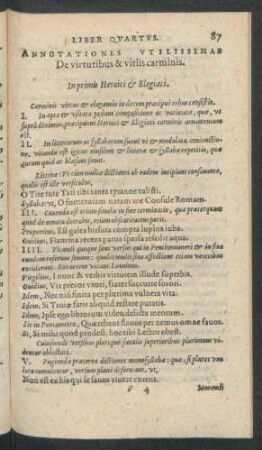 LIBER QVARTVS. 87
ANNOTATIONES VTILISSIMAE
De virtutibus & vitiis carminis.
In primis Heroici & Elegiaci.
Carminis virtus & elegantia in decem præcipuè rebus consistit.
I. In apta & visitata pedum compositione ac varietate, quæ, vt
suprà diximus, præcipuum Heroici & Elegiaci carminis ornamentum
est.
II. In literarum ac syllabarum suaui & modulata coniunctio-
ne, vitanda est igitur eiusdem & literæ & syllabæ repetitio, quæ
aurium quid ac blæsum sonat.
Literæ: Vt cùm multæ dictiones ab eadem incipiunt consonante,
qualis est ille versiculus,
O Tite tute Tati tibi tanta tyranne tulisti.
Syllabæ vt, O fortunatam natam me Consule Romam.
III. Cauenda est etiam similis in fine terminatio, quæ præterquam
quòd de ornatu derahit, etiam obscuritatem parit.
Propertius, Est galea hirsuta compta lupina iuba.
Ouidius, Flamma recens parua sparsa resedit aqua.
IIII. Vitandi quoque sunt versus qui in Penthimimeri & in fine
eundem referunt sonum:
excuderunt. Eos autem vocant Leoninos.
Virgilius, I nunc & verbis virtutem illude superbis.
Ouidius, Vir precor vxori, frater succurre sorori.
Idem, Nec nisi finita per plurima vulnera vita.
Idem, Si Troiæ fatis aliquid restare putatis.
Idem, Ipse ego librorum video delicta meorum.
Sic in Pentametro, Quærebant flauos per nemus omne fauos.
Et, Si mihi quòd prodest, hoc tibi Lector obest.
Cuiusmodi versibus plerique sæculi superioribus plurimum vi-
dentur oblectati.
V. Fugienda præterea dictiones monosyllabæ: quæ si plures vnà
continentur, versum planè deformant, vt,
Non est ea his qui se sanus viuere curent.
Monendi